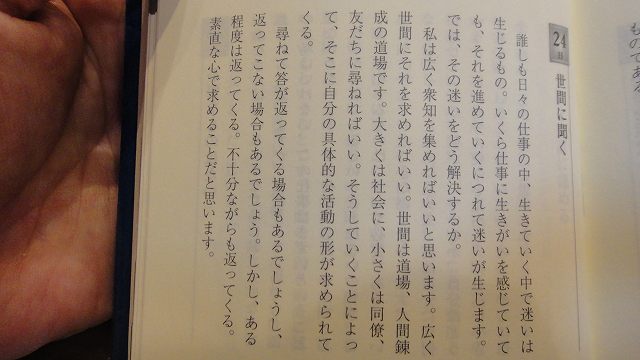 ものである
24日
世間に聞く
誰しも日々の仕事の中、生きていく中で迷いは
生じるもの。いくら仕事に生きがいを感じていて
も、それを進めていくにつれて迷いが生じます。
では、その迷いをどう解決するか。
私は広く衆知を集めればいいと思います。広く
世間にそれを求めればいい。世間は道場、人間錬
成の道場です。大きくは社会に、小さくは同僚、
友だちに尋ねればいい。そうしていくことによっ
て、そこに自分の具体的な活動の形が求められて
くる。
尋ねて答が返ってくる場合もあるでしょうし、
返ってこない場合もあるでしょう。しかし、ある
程度は返ってくる。不十分ながらも返ってくる。
素直な心で求めることだと思います。